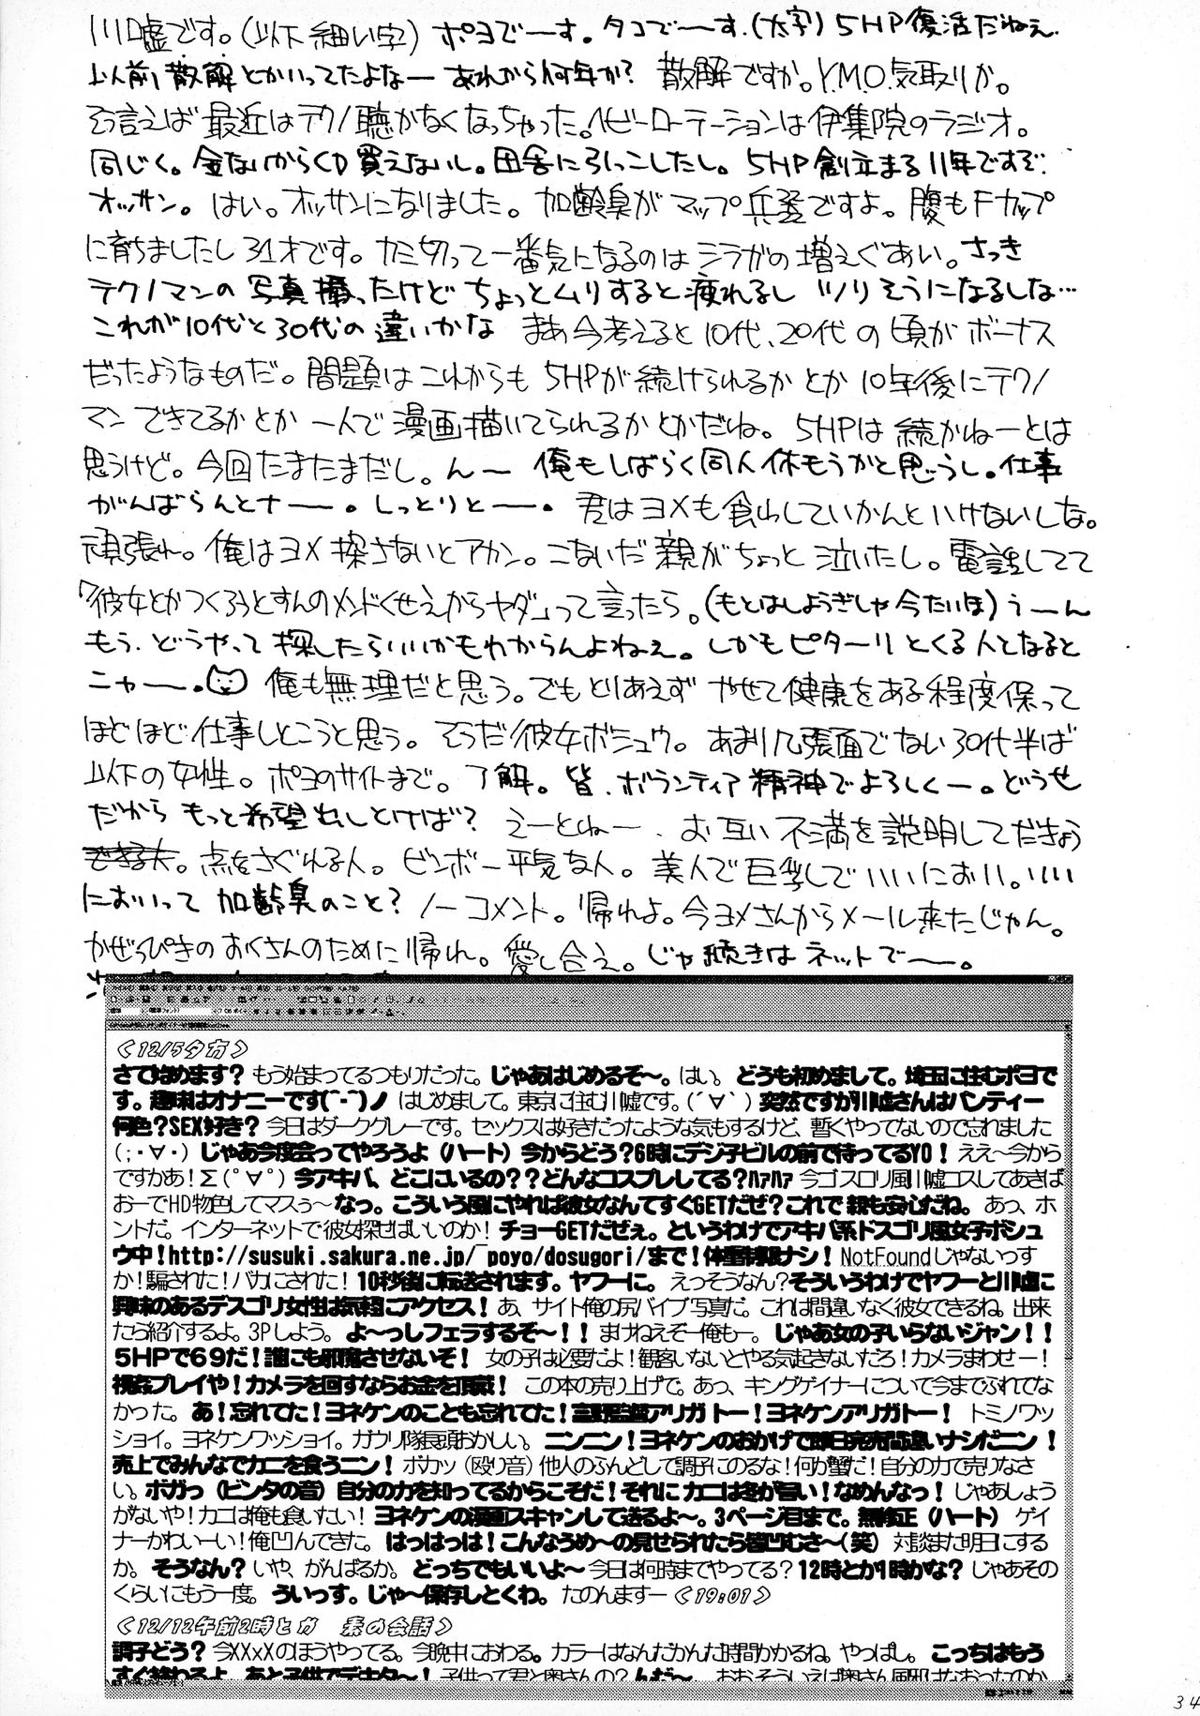 川嘘です。(以下細い字) ポヨでーす。タコでーす.(太字) 5HP復活だねぇ.
以前散解とかいってたよなー あれから何年か? 散解ですか。Y.M.O.気取りか。
そう言えば最近はテクノ聴かなくなっちゃった。ヘビーローテーションは伊集院のラジオ。
同じく。金ないからCD買えないし。田舎に引っこしたし。5HP創立まる11年ですぞ.
オッサン。はい。オッサンになりました。加齢臭がマップ兵器ですよ。腹もFカップ
に育ちましたし31才です。カミ切って一番気になるのはシラガの増えぐあい。さっき
テクノマンの写真撮ったけどちょっとムリすると疲れるし ツリそうになるしな…
これが10代と30代の違いかな まあ今考えると10代、20代の頃がボーナス
だったようなものだ。問題はこれからも5HPが続けられるかとか10年後にテクノ
マンできてるかとか一人で漫画描いてられるかとかだね。5HPは続かねーとは
思うけど。今回たまたまだし。んー 俺もしばらく同人休もうかと思うし。仕事
がんばらんとナー。しっとりとー。君はヨメも食わしていかんといけないしな。
頑張れ。俺はヨメ探さないとアカン。こないだ親がちょっと泣いたし。電話してて
「彼女とかつくろうとすんのメンドくせえからヤダ」って言ったら。(もとはしようぎしゃ今たいほ) うーん
もう.どうやって探したらいいかもわからんよねぇ。しかもピターリとくる人となると
ニャー。 俺も無理だと思う。でもとりあえずやせて健康をある程度保って
ほどほど仕事しとこうと思う。そうだ彼女ボシュウ。あまり几張面でない30代半ば
以下の女性。ポヨのサイトまで。了解。皆、ボランティア精神でよろしくー。どうせ
だからもっと希望出しとけば? えーとねー、お互い不満を説明してだきょう
できる夫。点をさぐれる人。ビンボー平気な人。美人で巨乳しでいいにおい。いい
においって加齢臭のこと? ノーコメント。帰れよ。今ヨメさんからメール来たじゃん。
かぜっぴきのおくさんのために帰れ。愛し合え。じゃ続きはネットでー。
<12/5夕方>
さて始めます? もう始まってるつもりだった。じゃあはじめるぞ〜。はい。どうも初めまして。埼玉に住むポヨで
す。趣味はオナニーです(^-^)ノ はじめまして。東京に住む川嘘です。(´∀`) 突然ですが川嘘さんはパンティー
何色?SEX好き? 今日はダークグレーです。セックスは好きだったような気もするけど、暫くやってないので忘れました
(;・∀・) じゃあ今度会ってやろうよ(ハート) 今からどう?6時にデジ子ビルの前で待ってるYO! ええ〜今から
ですかあ!Σ(゚∀゚) 今アキバ、どこにいるの??どんなコスプレしてる?ハァハァ 今ゴスロリ風川嘘コスしてあきば
おーでHD物色してマスぅ〜 なっ。こういう風にやれば彼女なんてすぐGETだぜ?これで親も安心だね。あっ、ホ
ントだ。インターネットで彼女探せばいいのか! チョーGETだぜぇ。というわけでアキバ系ドスゴリ風女子ボシュ
ウ中!http://susuki.sakura.ne.jp/~poyo/dosugori/まで!体重制限ナシ! NotFoundじゃないっす
か!騙された!バカにされた! 10秒後に転送されます。ヤフーに。えっそうなん?そういうわけでヤフーと川嘘に
興味のあるデスゴリ女性は気軽にアクセス! あ、サイト俺の尻バイブ写真だ。これは間違いなく彼女できるね。出来
たら紹介するよ。3Pしよう。よ〜っしフェラするぞ〜!! まけねえぞー俺もー。じゃあ女の子いらないジャン!!
5HPで69だ!誰にも邪魔させないぞ! 女の子は必要だよ!観客いないとやる気起きないだろ!カメラまわせー!
視姦プレイや!カメラを回すならお金を頂戴! この本の売り上げで。あっ、キングゲイナーについて今までふれてな
かった。あ!忘れてた!ヨネケンのことも忘れてた!富野監督アリガトー!ヨネケンアリガトー! トミノワッ
ショイ。ヨネケンワッショイ。ガウリ隊長頭おかしい。ニンニン!ヨネケンのおかげで即日完売間違いナシだニン!
売上でみんなでカニを食うニン! ポカッ(殴り音)他人のふんどしで調子にのるな!何が蟹だ!自分の力で売りなさ
い。ボガっ(ビンタの音) 自分の力を知ってるからこそだ!それにカニは冬が旨い!なめんなっ! じゃあしょう
がないや!カニは俺も食いたい! ヨネケンの漫画スキャンして送るよ〜。3ページ目まで。無修正(ハート) ゲイ
ナーかわいーい!俺凹んできた。はっはっは!こんなうめ〜の見せられたら皆凹むさ〜(笑) 対談また明日にする
か。そうなん? いや、がんばるか。どっちでもいいよ〜 今日は何時までやってる? 12時とか1時かな? じゃあその
くらいにもう一度。ういっす。じゃ〜保存しとくわ。たのんますー <19:01>
<12/12午前2時とか 素の会話>
調子どう? 今XXxXのほうやってる。今晩中におわる。カラーはなんだかんだ時間かかるね。やっぱし。こっちはもう
すぐ終わるよ。あと子供でデキター! 子供って君と奥さんの? んだ〜。おおそういえば奥さん風邪はなおったのか
34